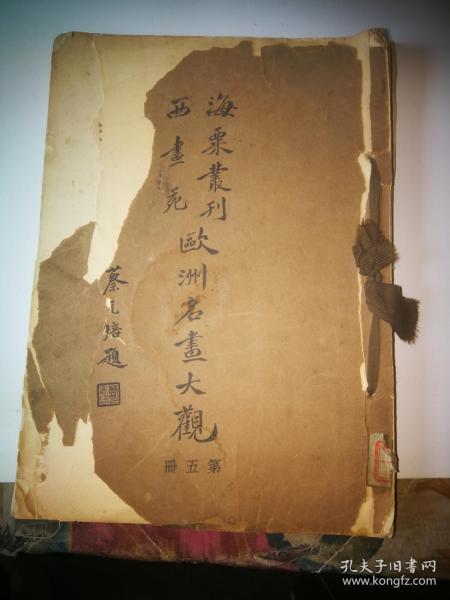 海粟叢刊
西畫苑
歐洲名畫大觀
第五册
蔡元培題
孔夫子旧书网
www.kongfz.com